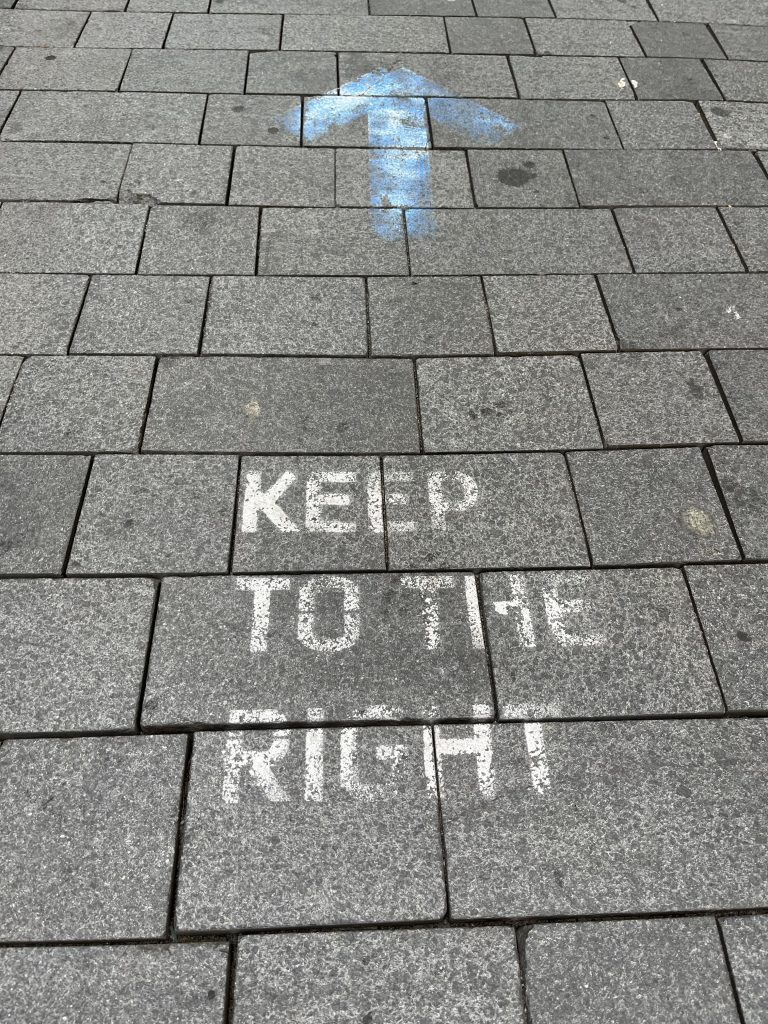 KEEP
TO THE
RIGHT